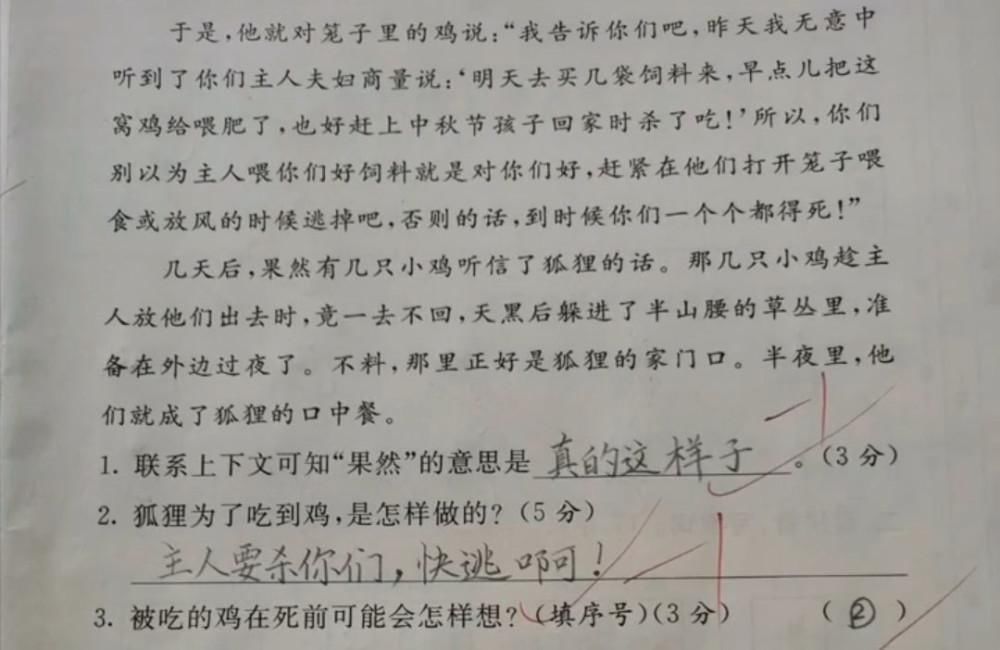 于是,他就对笼子里的鸡说:“我告诉你们吧,昨天我无意中
听到了你们主人夫妇商量说:‘明天去买几袋饲料来,早点儿把这
窝鸡给喂肥了,也好赶上中秋节孩子回家时杀了吃!’所以,你们
别以为主人喂你们好饲料就是对你们好,赶紧在他们打开笼子喂
食或放风的时候逃掉吧,否则的话,到时候你们一个个都得死!”
几天后,果然有几只小鸡听信了狐狸的话。那几只小鸡趁主
人放他们出去时,竟一去不回,天黑后躲进了半山腰的草丛里,准
备在外边过夜了。不料,那里正好是狐狸的家门口。半夜里,他
们就成了狐狸的口中餐。
1. 联系上下文可知“果然”的意思是 真的这样子 。(3分) -1
2. 狐狸为了吃到鸡,是怎样做的?(5分)
主人要杀你们,快逃啊! -1
3. 被吃的鸡在死前可能会怎样想?(填序号)(3分) ( ② )